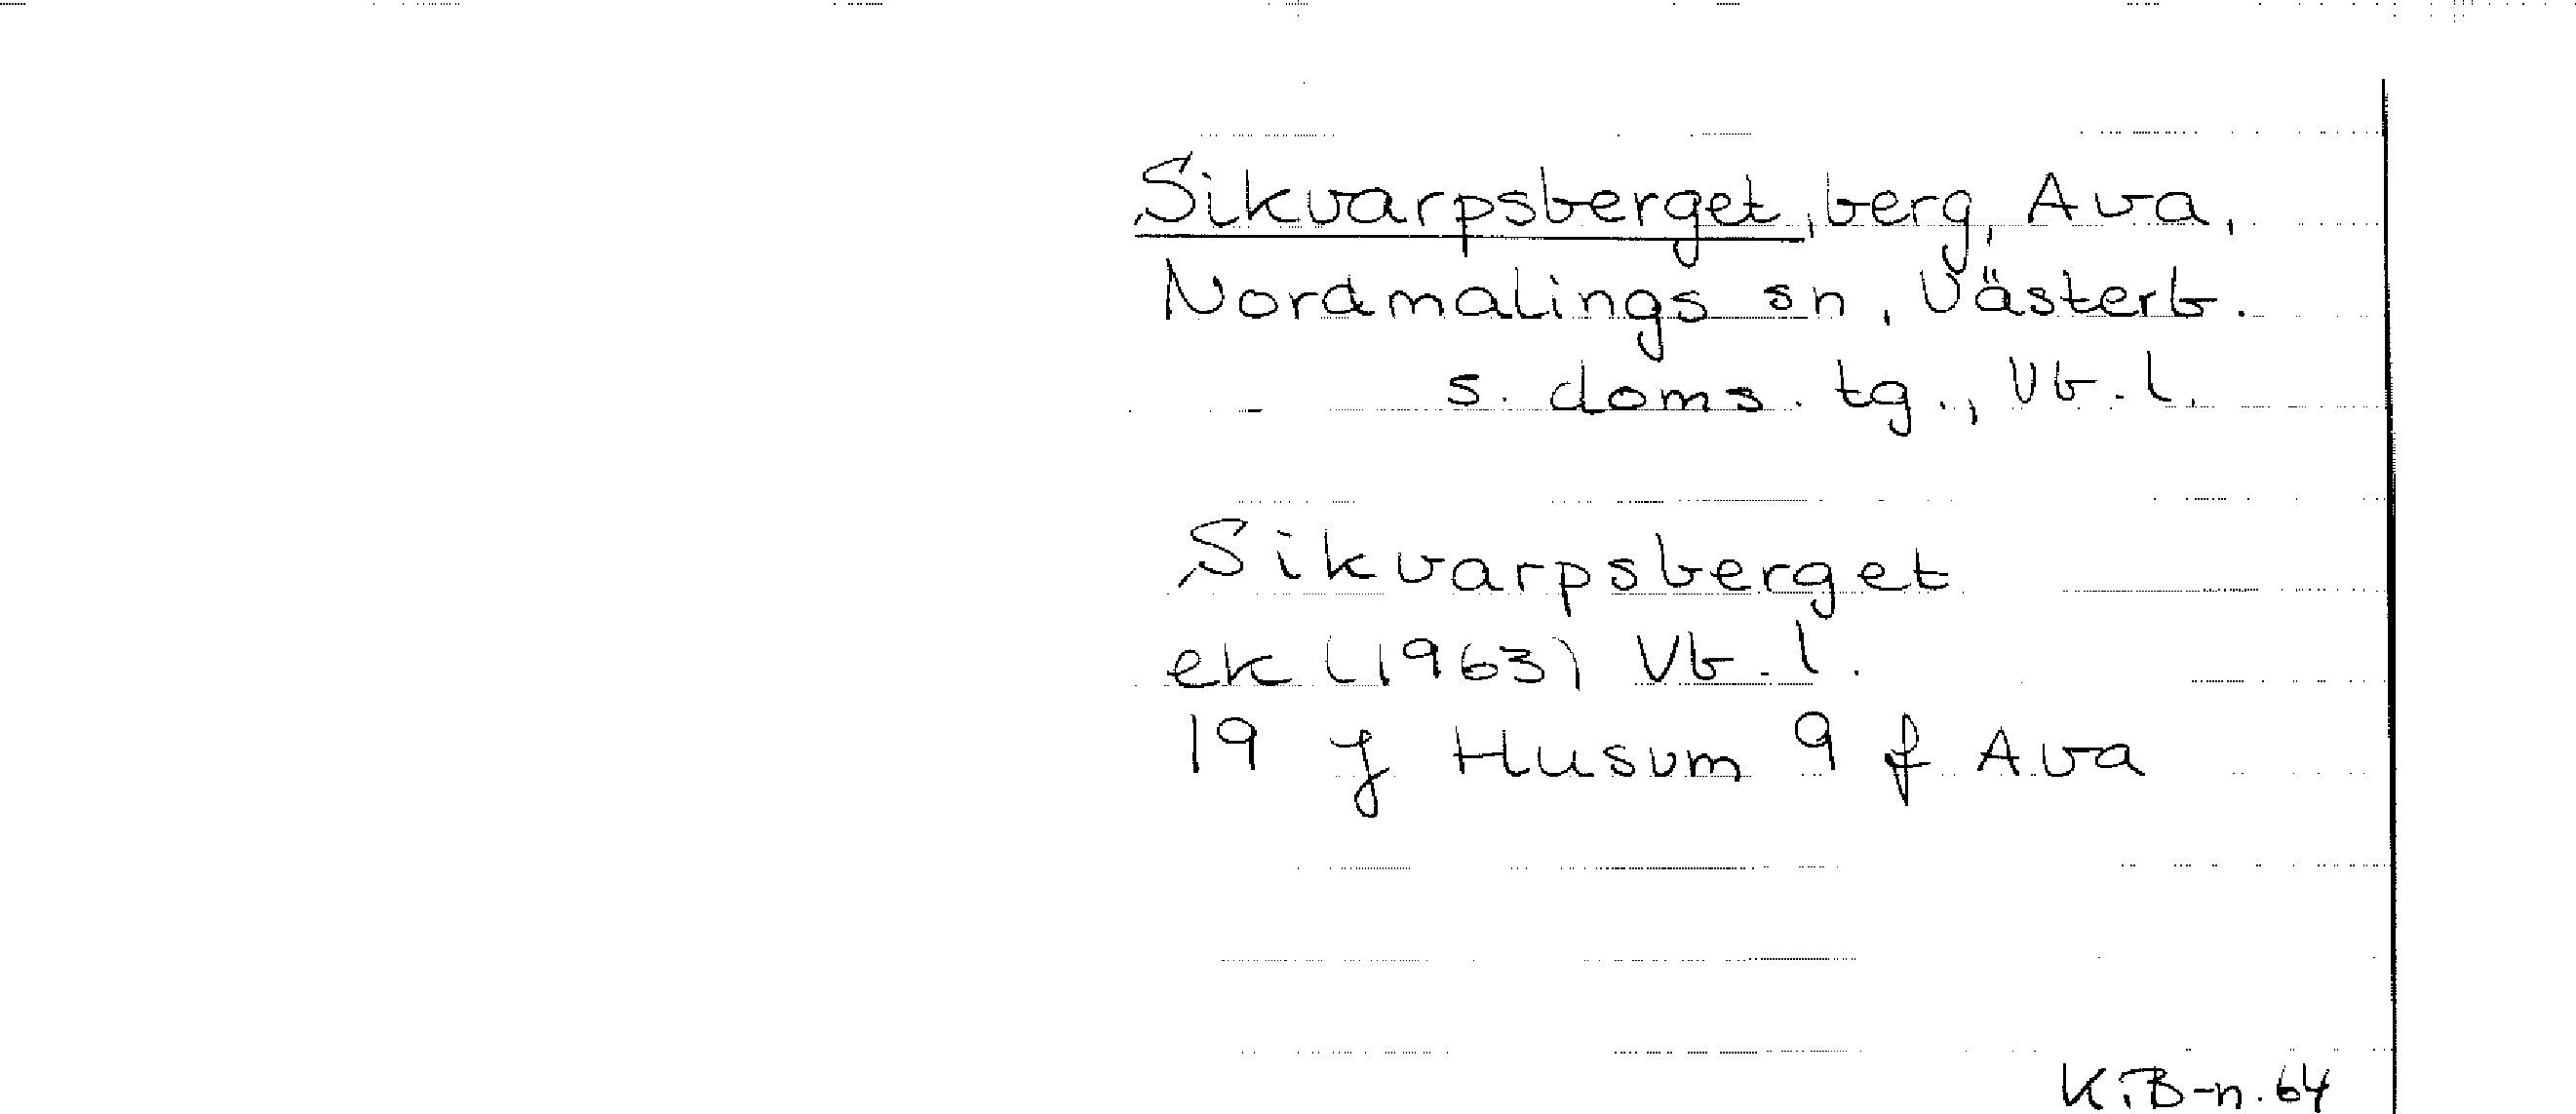 Sikvarpsberget, berg, Ava,
Nordmalings sn, Västerb.
s. doms. tg., Vb. l.
Sikvarpsberget
ek (1963) Vb. l.
19 J Husum 9 f Ava
K.B-n. 64